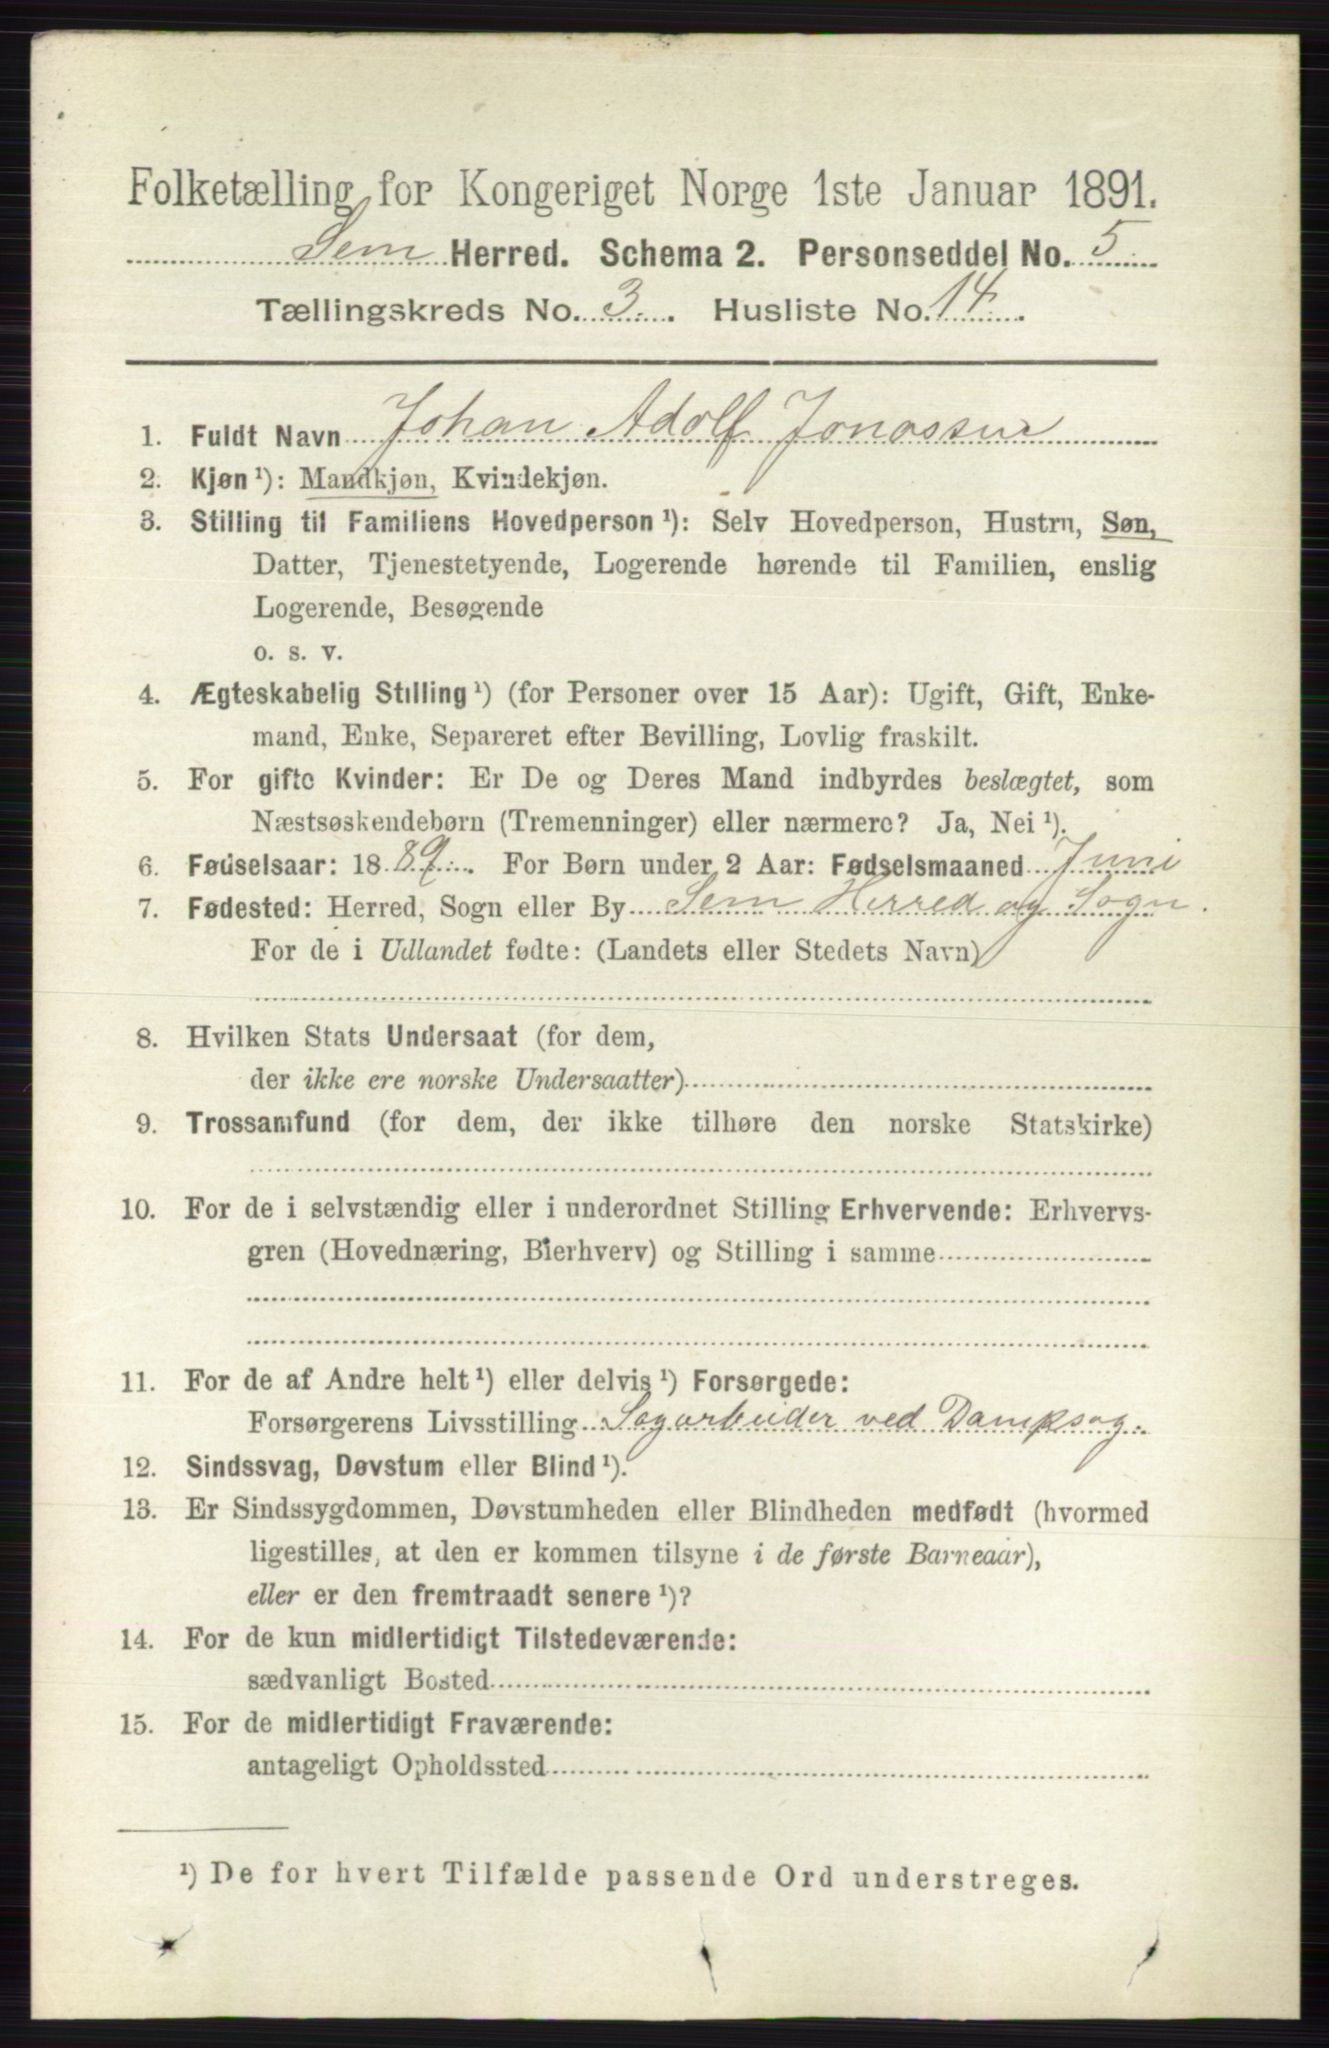 Folketælling for Kongeriget Norge 1ste Januar 1891.
Sem Herred. Schema 2. Personseddel No. 5
Tællingskreds No. 3. Husliste No. 14.
1. Fuldt Navn Johan Adolf Jonassen
2. Kjøn ¹): Mandkjøn, Kvindekjøn.
3. Stilling til Familiens Hovedperson ¹): Selv Hovedperson, Hustru, Søn,
Datter, Tjenestetyende, Logerende hørende til Familien, enslig
Logerende, Besøgende
o. s. v.
4. Ægteskabelig Stilling ¹) (for Personer over 15 Aar): Ugift, Gift, Enke-
mand, Enke, Separeret efter Bevilling, Lovlig fraskilt.
5. For gifte Kvinder: Er De og Deres Mand indbyrdes beslægtet, som
Næstsøskendebørn (Tremenninger) eller nærmere? Ja, Nei ¹).
6. Fødselsaar: 1889. For Børn under 2 Aar: Fødselsmaaned Juni
7. Fødested: Herred, Sogn eller By Sem Herred og Sogn.
For de i Udlandet fødte: (Landets eller Stedets Navn)
8. Hvilken Stats Undersaat (for dem,
der ikke ere norske Undersaatter)
9. Trossamfund (for dem, der ikke tilhøre den norske Statskirke)
10. For de i selvstændig eller i underordnet Stilling Erhvervende: Erhvervs-
gren (Hovednæring, Bierhverv) og Stilling i samme
11. For de af Andre helt ¹) eller delvis ¹) Forsørgede:
Forsørgerens Livsstilling Sagarbeider ved Dampsag.
12. Sindssvag, Døvstum eller Blind ¹).
13. Er Sindssygdommen, Døvstumheden eller Blindheden medfødt (hvormed
ligestilles, at den er kommen tilsyne i de første Barneaar),
eller er den fremtraadt senere ¹)?
14. For de kun midlertidigt Tilstedeværende:
sædvanligt Bosted
15. For de midlertidigt Fraværende:
antageligt Opholdssted
¹) De for hvert Tilfælde passende Ord understreges.